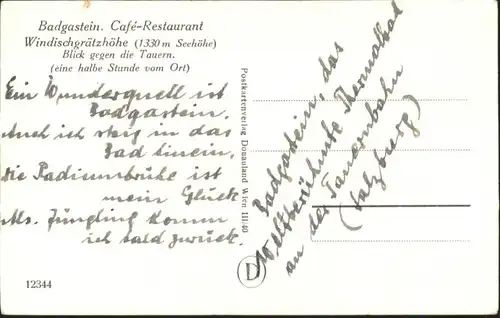 Badgastein. Café-Restaurant
Windischgrätzhöhe (1330 m Seehöhe)
Blick gegen die Tauern.
(eine halbe Stunde vom Ort)
Ein Wunderquell ist
Badgastein.
Auch ich steig in das
Bad hinein,
die Radiumbrühe ist
mein Glück
Als Jüngling komm
ich bald zurück.
12344
Postkartenverlag Donauland Wien III/40
D
Badgastein, das
Weltberühmte Thermalbad
an der Tauernbahn
(Salzburg)